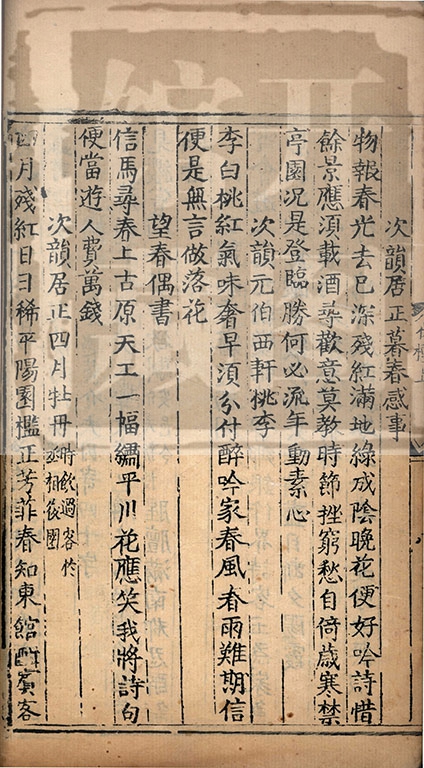 次韻居正暮春感事
物報春光去已深殘紅滿地綠成陰晚花便好吟詩惜
餘景應須載酒尋歡意莫教時節挫窮愁自倚歲寒禁
亭園況是登臨勝何必流年動素心
次韻元伯西軒桃李
李白桃紅氣味奢早須分付醉吟家春風春雨難期信
便是無言做落花
望春偶書
信馬尋春上古原天工一幅繡平川花應笑我將詩句
便當遊人費萬錢
次韻居正四月牡丹時飲過客於丞相後園
四月殘紅日日稀平陽園檻正芳菲春知東館酣賓客